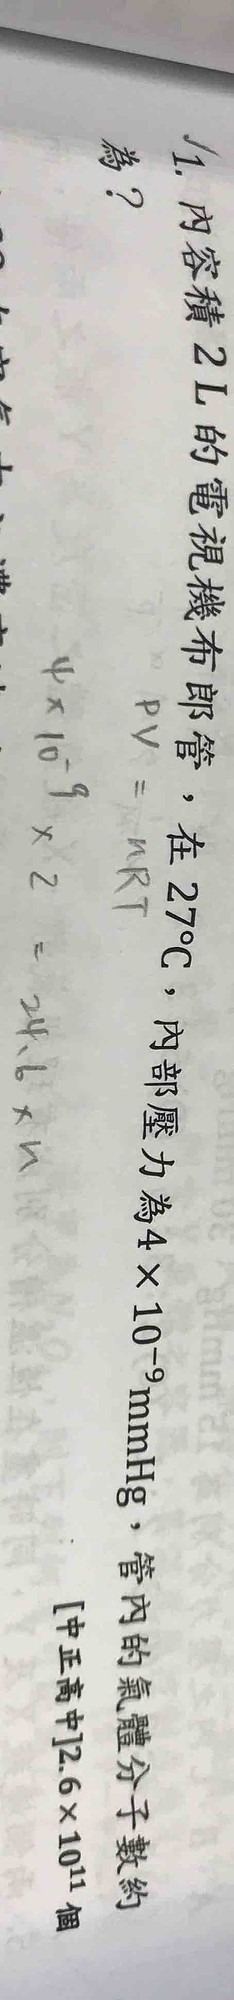 ✓1. 內容積 2 L 的電視機布郎管，在 27°C，內部壓力為4 × 10⁻⁹mmHg，管內的氣體分子數約
為？
PV = nRT
[中正高中]2.6 × 10¹¹ 個
4 × 10⁻⁹ × 2 = 24.6 × n